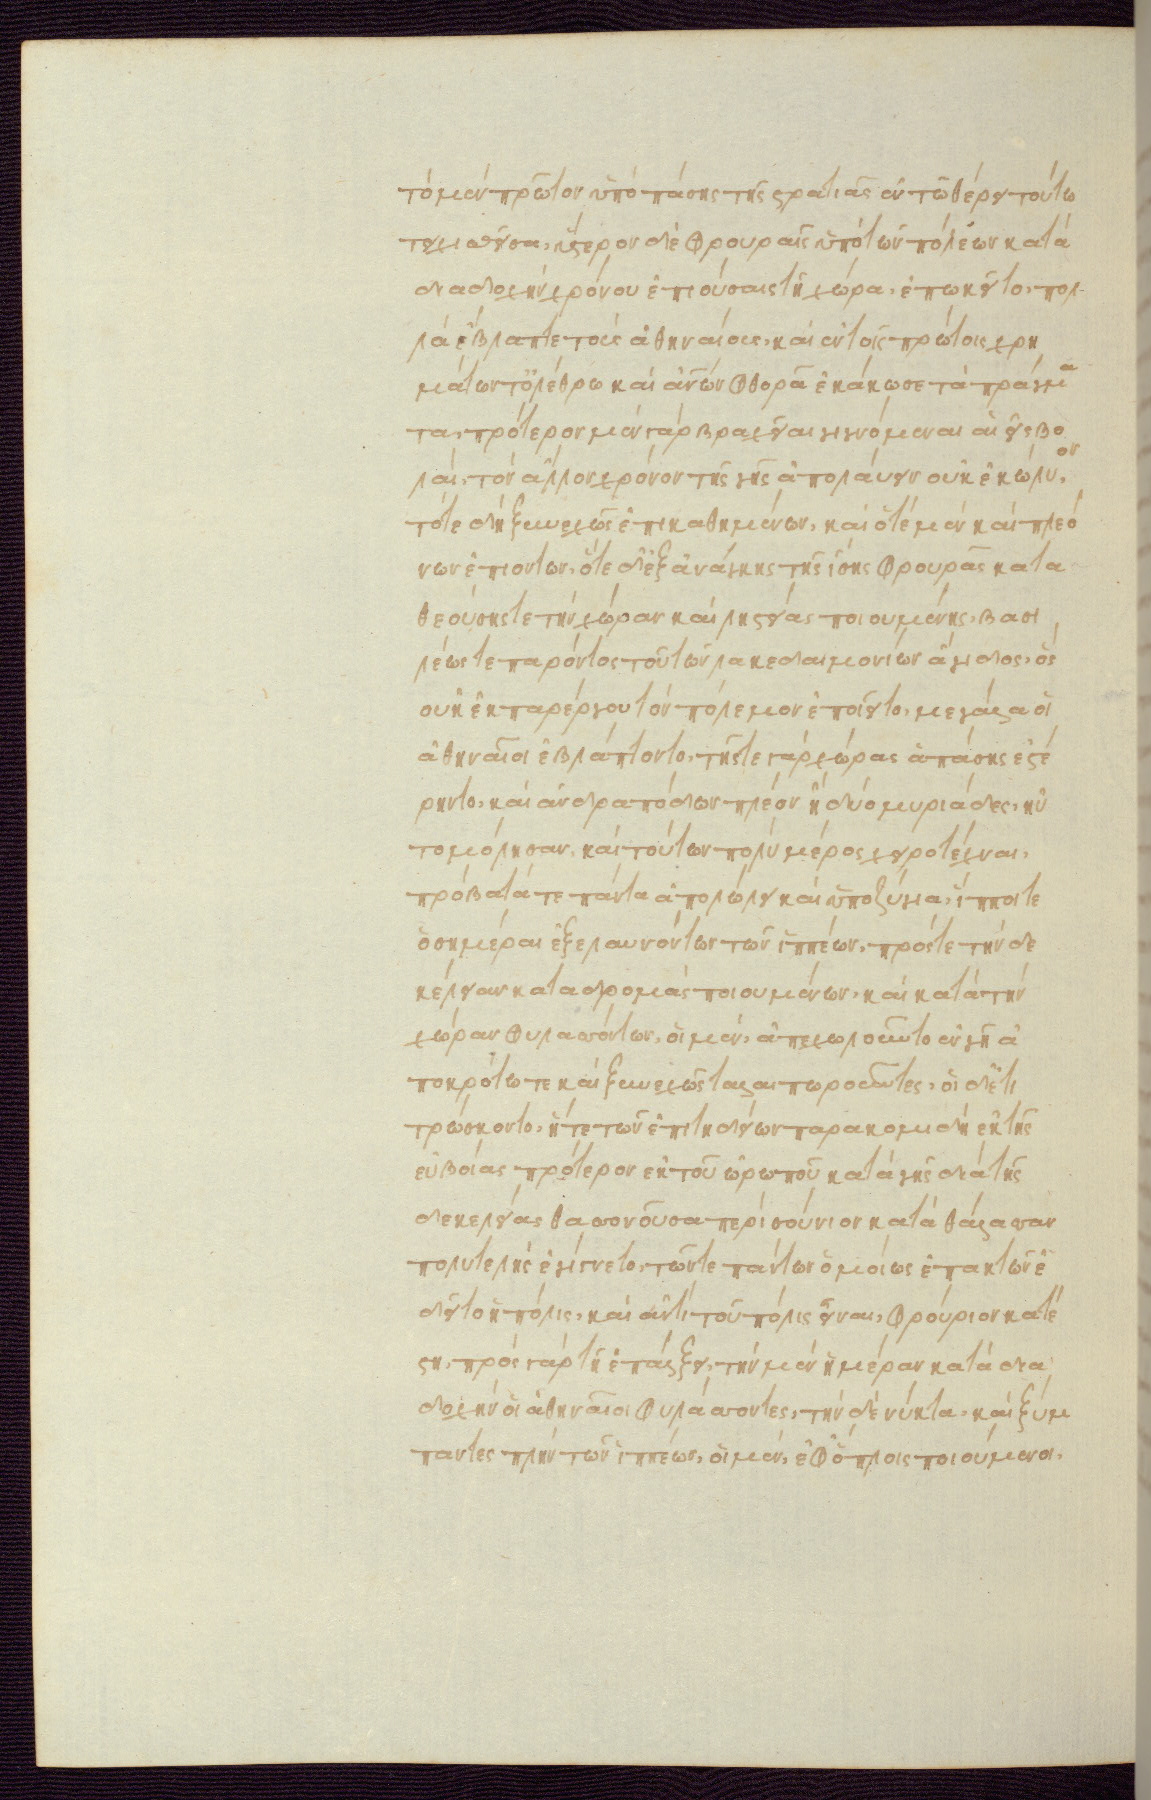 τὸ μὲν πρῶτον ὑπὸ πάσης τῆς στρατιᾶς ἐν τῶ θέρει τούτω
τειχισθεῖσα, ὕστερον δὲ φρουραῖς ὑπὸ τῶν πόλεων κατὰ
διαδοχὴν χρόνου ἐπιούσαις τῆ χώρα, ἐπωκεῖτο, πολ-
λὰ ἔβλαπτε τοὺς ἀθηναίους, καὶ ἐν τοῖς πρώτοις χρη
μάτων τ᾽ ὀλέθρω καὶ ἀν̅ων φθορᾶ ἐκάκωσε τὰ πράγμα
τα, πρότερον μὲν γὰρ βραχεῖαι γιγνόμεναι αἱ ἐσβο
λαὶ, τὸν ἄλλον χρόνον τῆς γῆς ἀπολαύειν οὐκ ἐκώλυον,
τότε δὴ ξυνεχῶς ἐπικαθημένων, καὶ ὁτὲ μὲν καὶ πλεό
νων ἐπιόντων, ὁτὲ δ᾽ ἐξ ἀνάγκης τῆς ἴσης φρουρᾶς κατα
θεούσης τε τὴν χώραν καὶ ληστείας ποιουμένης, βασι
λέως τε παρόντος τοῦ τῶν λακεδαιμονίων ἄγιδος, ὃς
οὐκ ἐκ παρέργου τὸν πόλεμον ἐποιεῖτο, μεγάλα οἱ
ἀθηναῖοι ἐβλάπτοντο, τῆς τε γὰρ χώρας ἁπάσης ἐστέ
ρηντο, καὶ ἀνδραπόδων πλέον ἢ δύο μυριάδες, ηὐ
τομόλησαν, καὶ τούτων πολὺ μέρος χειροτέχναι,
πρόβατά τε πάντα ἀπολώλει καὶ ὑποζύγια, ἵπποι τε
ὁσημέραι ἐξελαυνόντων τῶν ἱππέων, πρός τε τὴν δε
κέλειαν καταδρομὰς ποιουμένων, καὶ κατὰ τὴν
χώραν φυλασσόντων, οἱ μὲν, ἀπεχωλοῦντο ἐν γῆ ἀ
ποκρότω τε καὶ ξυνεχῶς ταλαιπωροῦντες, οἱ δ᾽ ἐτι
τρώσκοντο, ἥ τε τῶν ἐπιτηδείων παρακομιδὴ ἐκ τῆς
εὐβοίας πρότερον ἐκ τοῦ ὠρωποῦ κατὰ γῆς διὰ τῆς
δεκελείας θάσσων οὖσα περὶ σούνιον κατὰ θάλασσαν
πολυτελὴς ἐγίγνετο, τῶν τε πάντων ὁμοίως ἐπακτῶν ἐ
δεῖτο ἡ πόλις, καὶ ἀντὶ τοῦ πόλις εἶναι, φρούριον κατέ
στη, πρὸς γὰρ τῆ ἐπάλξει, τὴν μὲν ἡμέραν κατὰ δια
δοχὴν οἱ ἀθηναῖοι φυλάσσοντες, τὴν δὲ νύκτα, καὶ ξύμ
παντες πλὴν τῶν ἱππέων, οἱ μὲν, ἐφ᾽ ὅπλοις ποιούμενοι,